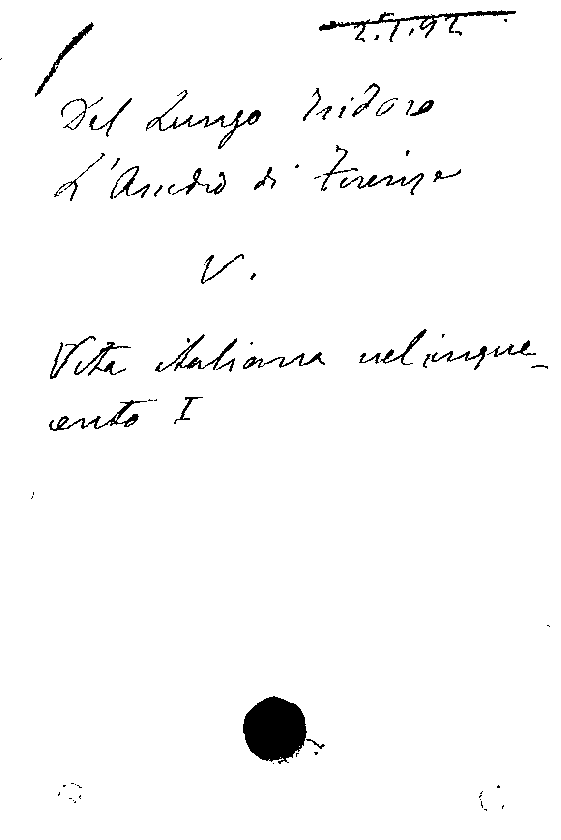 2.I.92
Del Lungo Isidoro
L'Assedio di Firenze
V.
Vita italiana nel inque_
ento I